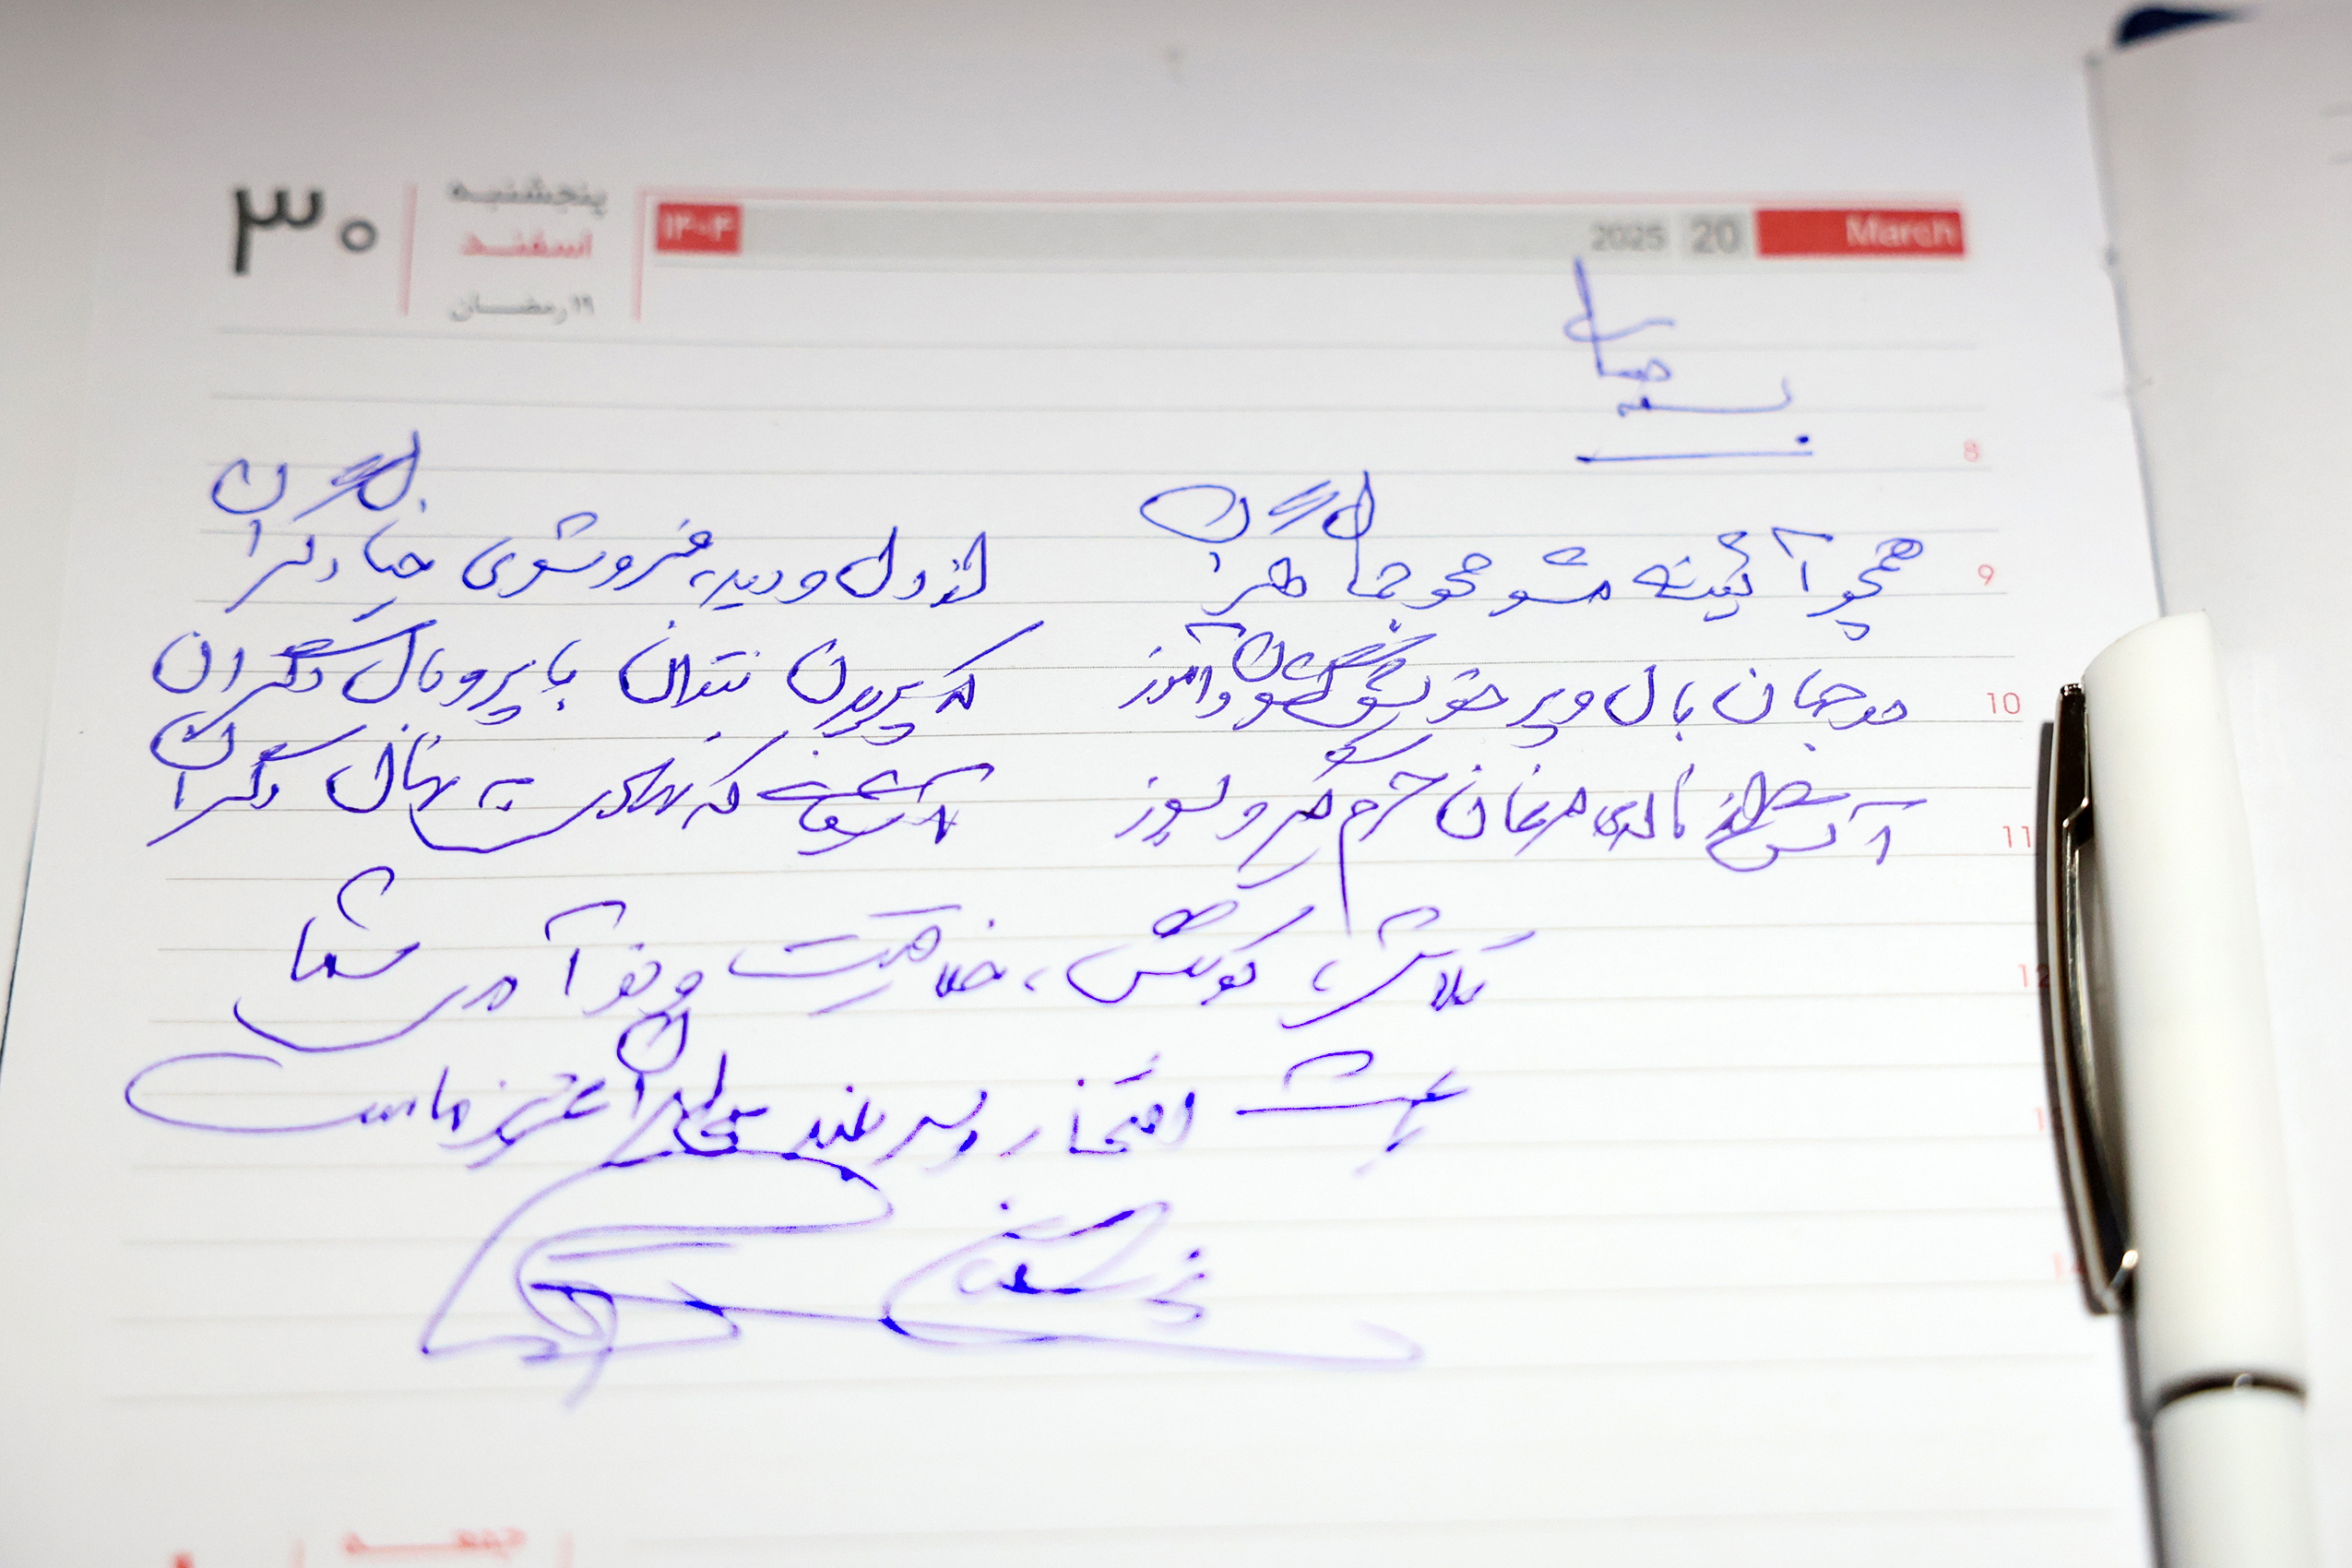 ۳۰
پنجشنبه
اسفند
۱۹ رمضان
۱۴۰۳
2025 20 March
بسمه تعالی
8
همچو آئینه مشو محو جمال دگران از دل و دیده فروشوی خیال دگران
9
در جهان بال و پر خویش گشودن آموز که پریدن نتوان با پر و بال دگران
10
آتش از ناله‌ی مرغان حرم گیر و بسوز آشیانی که نهادی به نهال دگران
11
تلاش، کوشش، خلاقیت و نوآوری شما
12
باعث افتخار و سربلندی ایران عزیز ماست
جمعه